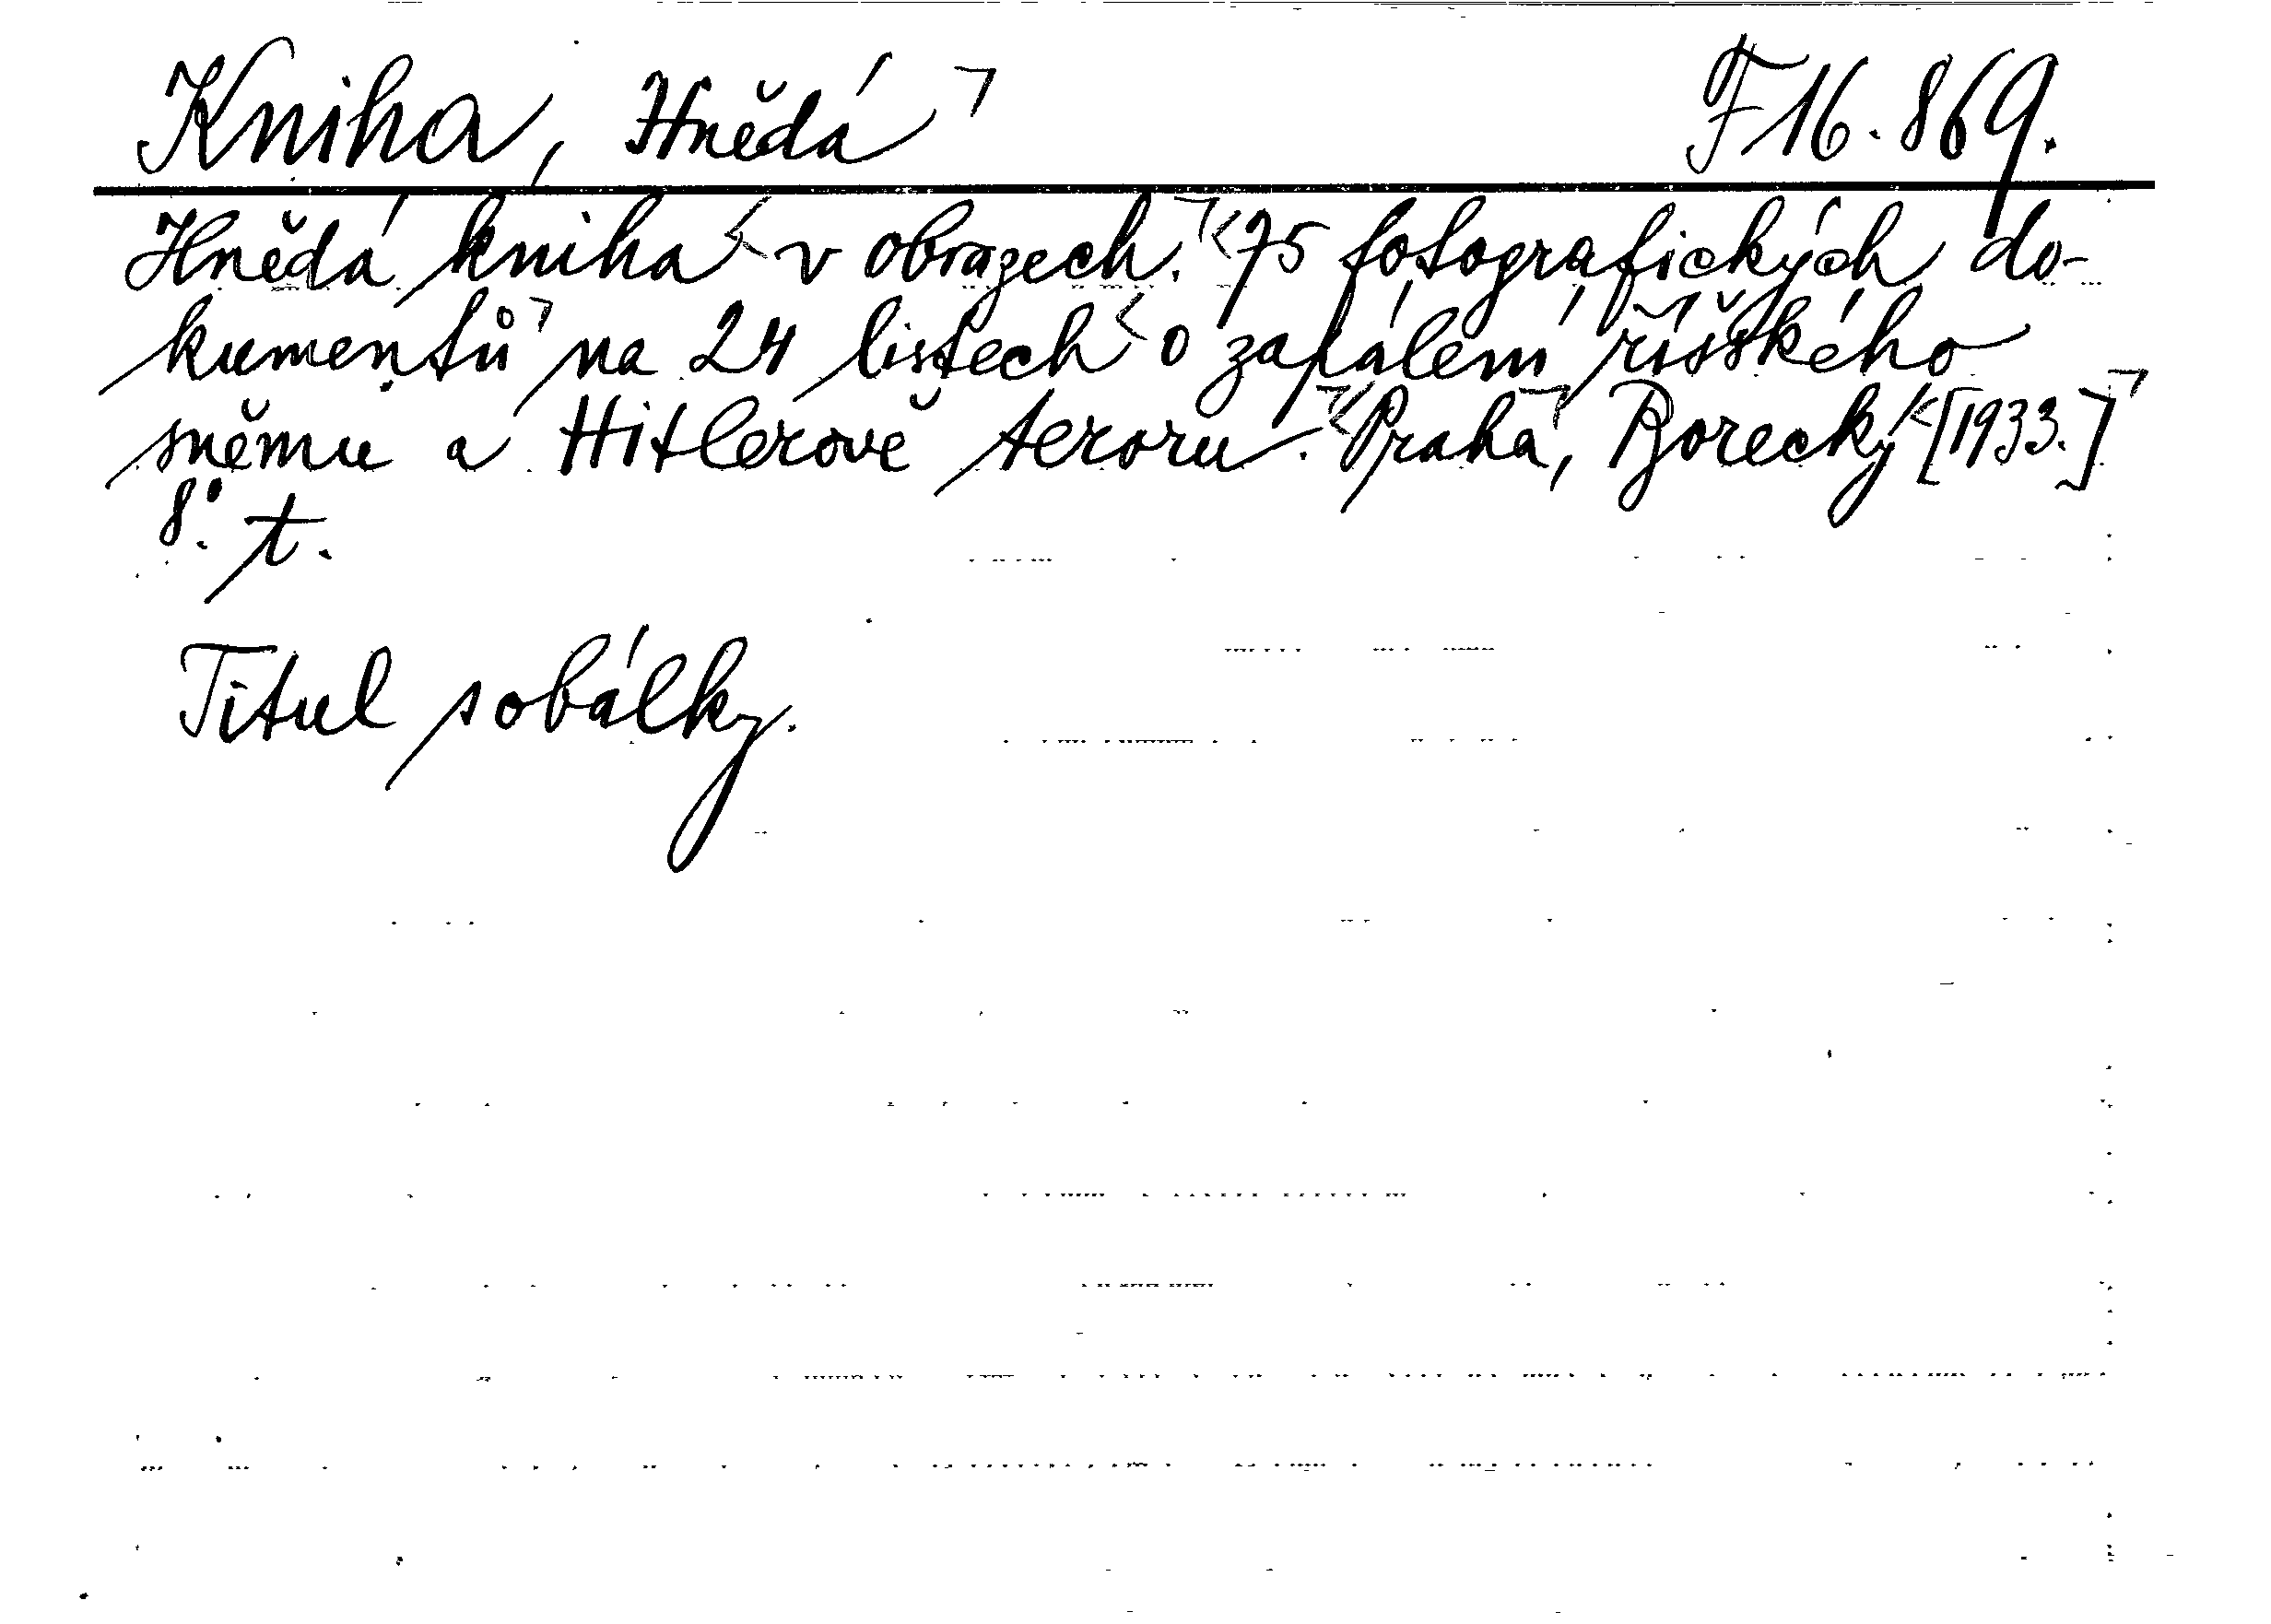 Kniha, Hnědá F 16.869.
Hnědá kniha v obrazech. 75 fotografických do-
kumentů na 24 listech o zapálení říšského
sněmu a Hitlerově teroru. Praha, Borecký [1933.]
8°. t.
Titul s obálky.